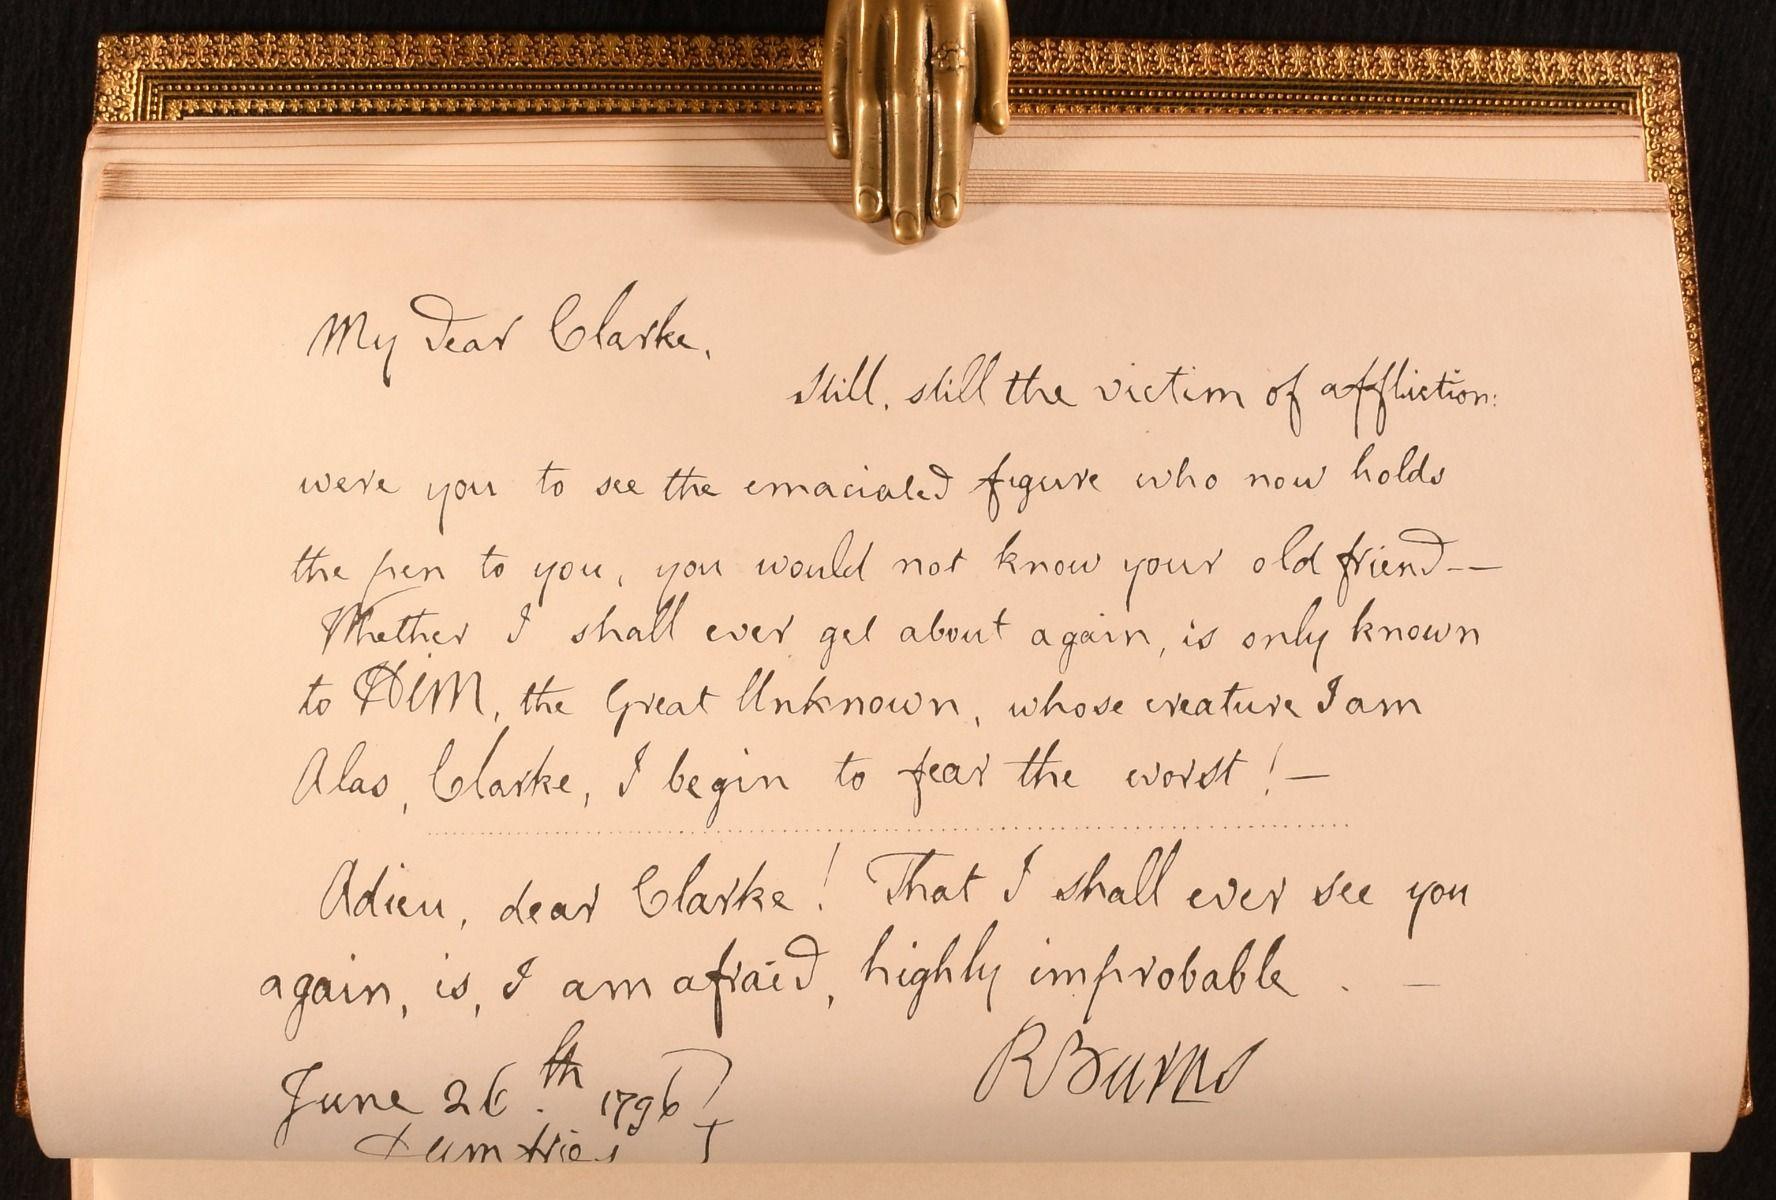 My dear Clarke,
Still, still the victim of affliction:
were you to see the emaciated figure who now holds
the pen to you, you would not know your old friend--
Whether I shall ever get about again, is only known
to HIM, the Great Unknown, whose creature I am
Alas, Clarke, I begin to fear the worst! —
Adieu, dear Clarke! That I shall ever see you
again, is, I am afraid, highly improbable. —
June 26.th 1796
RBurns
Dumfries